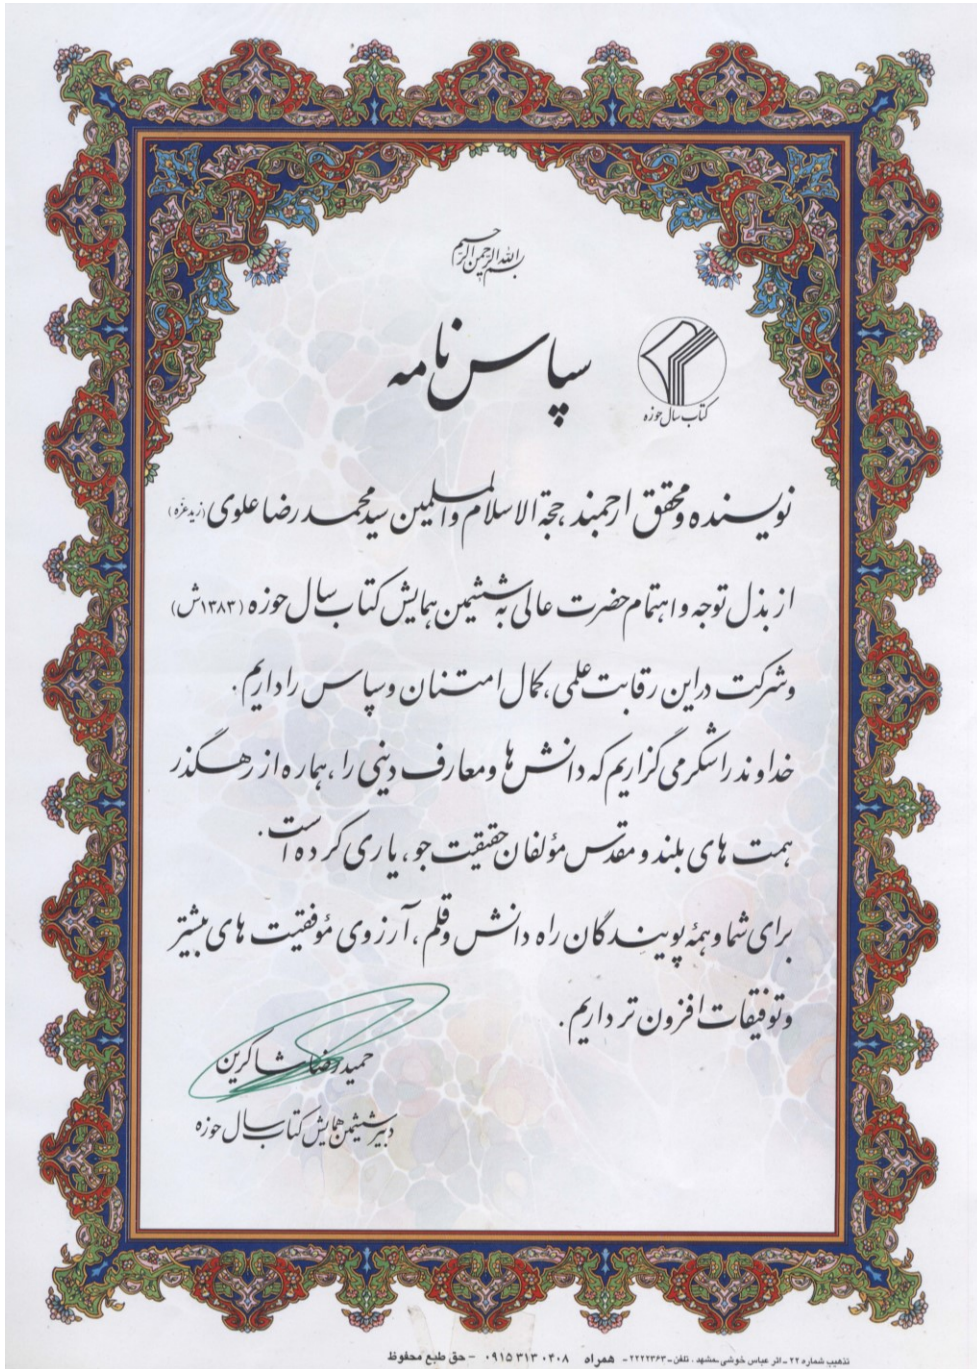 بسم الله الرحمن الرحیم
سپاس نامه
کتاب سال حوزه
نویسنده و محقق ارجمند، حجة الاسلام والمسلمین سید محمد رضا علوی (زید عزّه)
از بذل توجه و اهتمام حضرت عالی به ششمین همایش کتاب سال حوزه (۱۳۸۳ش)
و شرکت در این رقابت علمی، کمال امتنان و سپاس را داریم.
خداوند را شکر می گزاریم که دانش ها و معارف دینی را، هماره از رهگذر
همت های بلند و مقدس مؤلفان حقیقت جو، یاری کرده است.
برای شما و همهٔ پویندگان راه دانش و قلم، آرزوی مؤفقیت های بیشتر
و توفیقات افزون تر داریم.
حمید رضا شاکرین
دبیر ششمین همایش کتاب سال حوزه
تذهیب شماره ۲۲ ـ اثر عباس خوشی ـ مشهد ـ تلفن ـ ۲۲۲۲۳۶۳ ـ همراه ۰۹۱۵ ۳۱۳ ۰۴۰۸ - حق طبع محفوظ